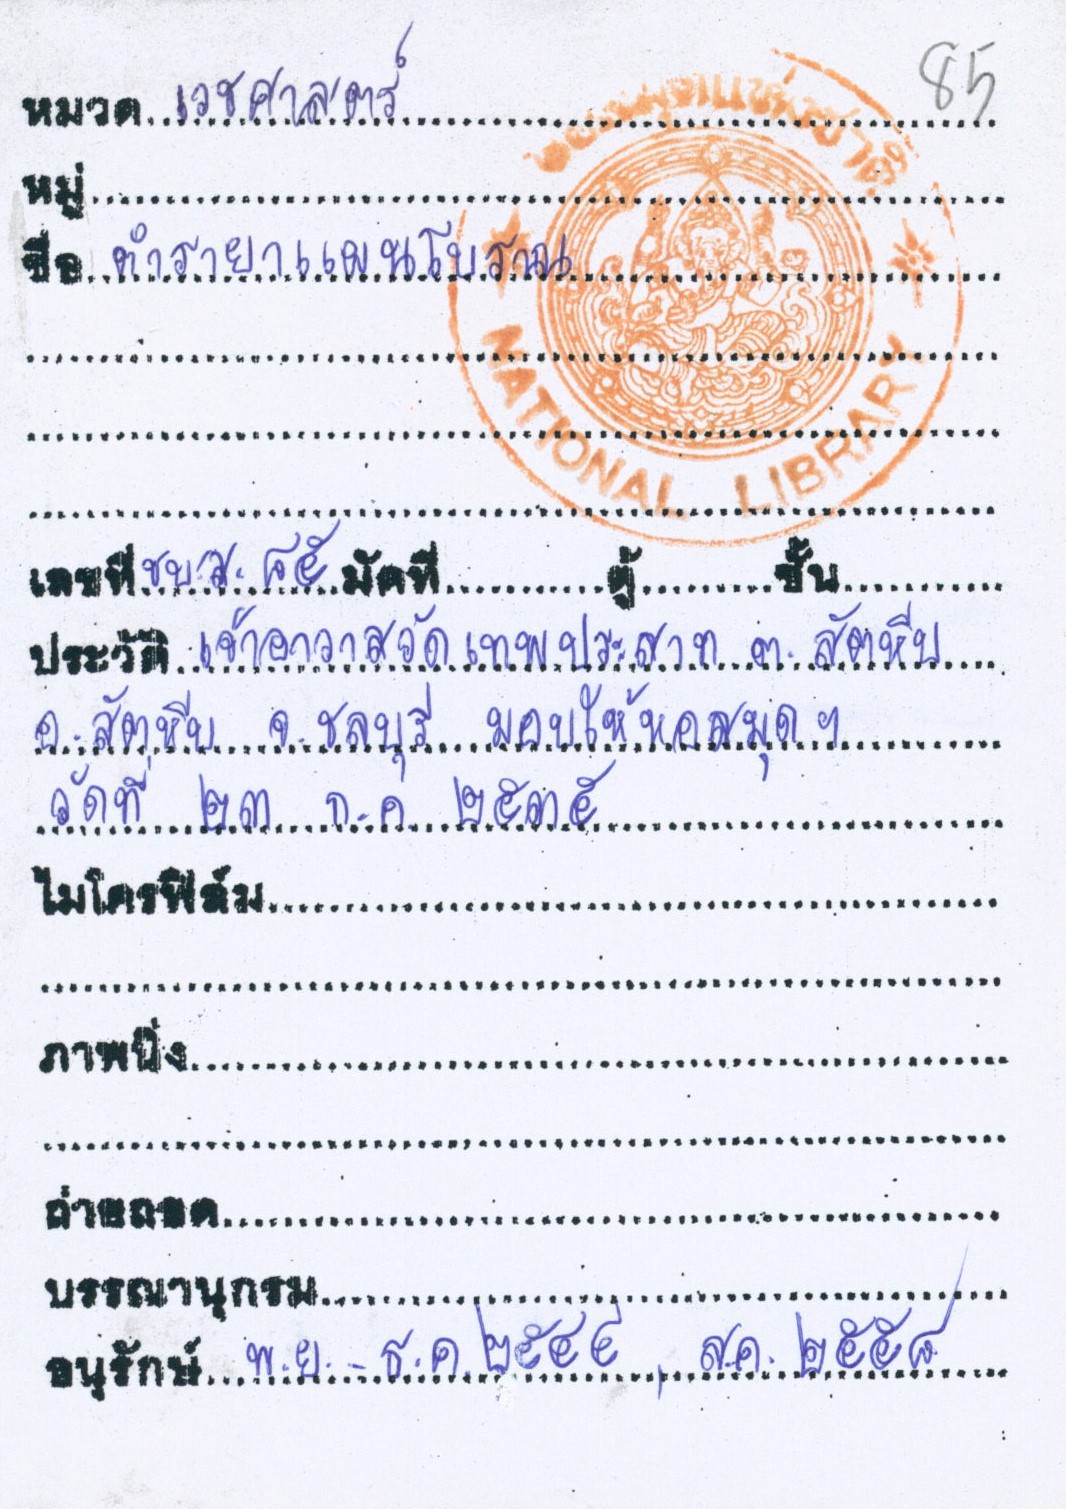 85
หมวด เวชศาสตร์
หอสมุดแห่งชาติ
หมู่
ชื่อ ตำรายาแผนโบราณ
NATIONAL LIBRARY
เลขที่ ชบ.ส. ๘๕ มัดที่ ตู้ ชั้น
ประวัติ เจ้าอาวาสวัดเทพประสาท ต. สัตหีบ
อ. สัตหีบ จ. ชลบุรี มอบให้หอสมุดฯ
วัดที่ ๒๓ ก.ค. ๒๕๓๕
ไมโครฟิล์ม
ภาพนิ่ง
ถ่ายถอด
บรรณานุกรม
อนุรักษ์ พ.ย. - ธ.ค. ๒๕๔๔, ส.ค. ๒๕๕๘